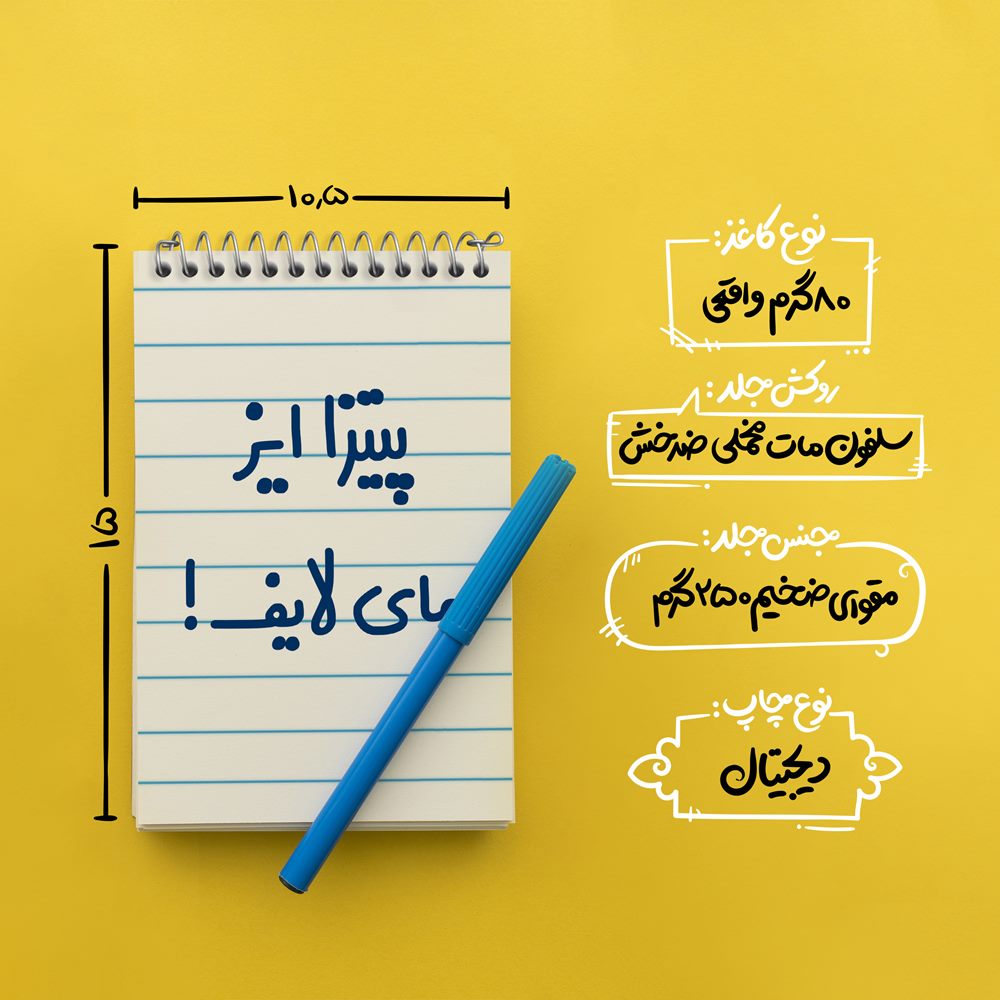 ۱۰,۵
۱۵
پیتزا ایز
مای لایف !
نوع کاغذ:
۸۰گرم واقعی
روکش جلد:
سلفون مات مخملی ضدخش
جنس جلد:
مقوای ضخیم ۲۵۰گرم
نوع چاپ:
دیجیتال